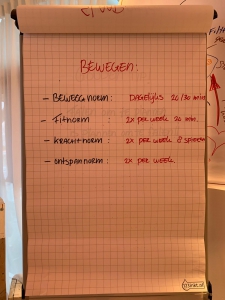 BEWEGEN:
- BEWEEGNORM: DAGELIJKS 20/30 min
- FITNORM: 2x PER WEEK 20 min.
- KRACHTNORM: 2x PER WEEK 8
- ONTSPANNORM: 2x PER WEEK.